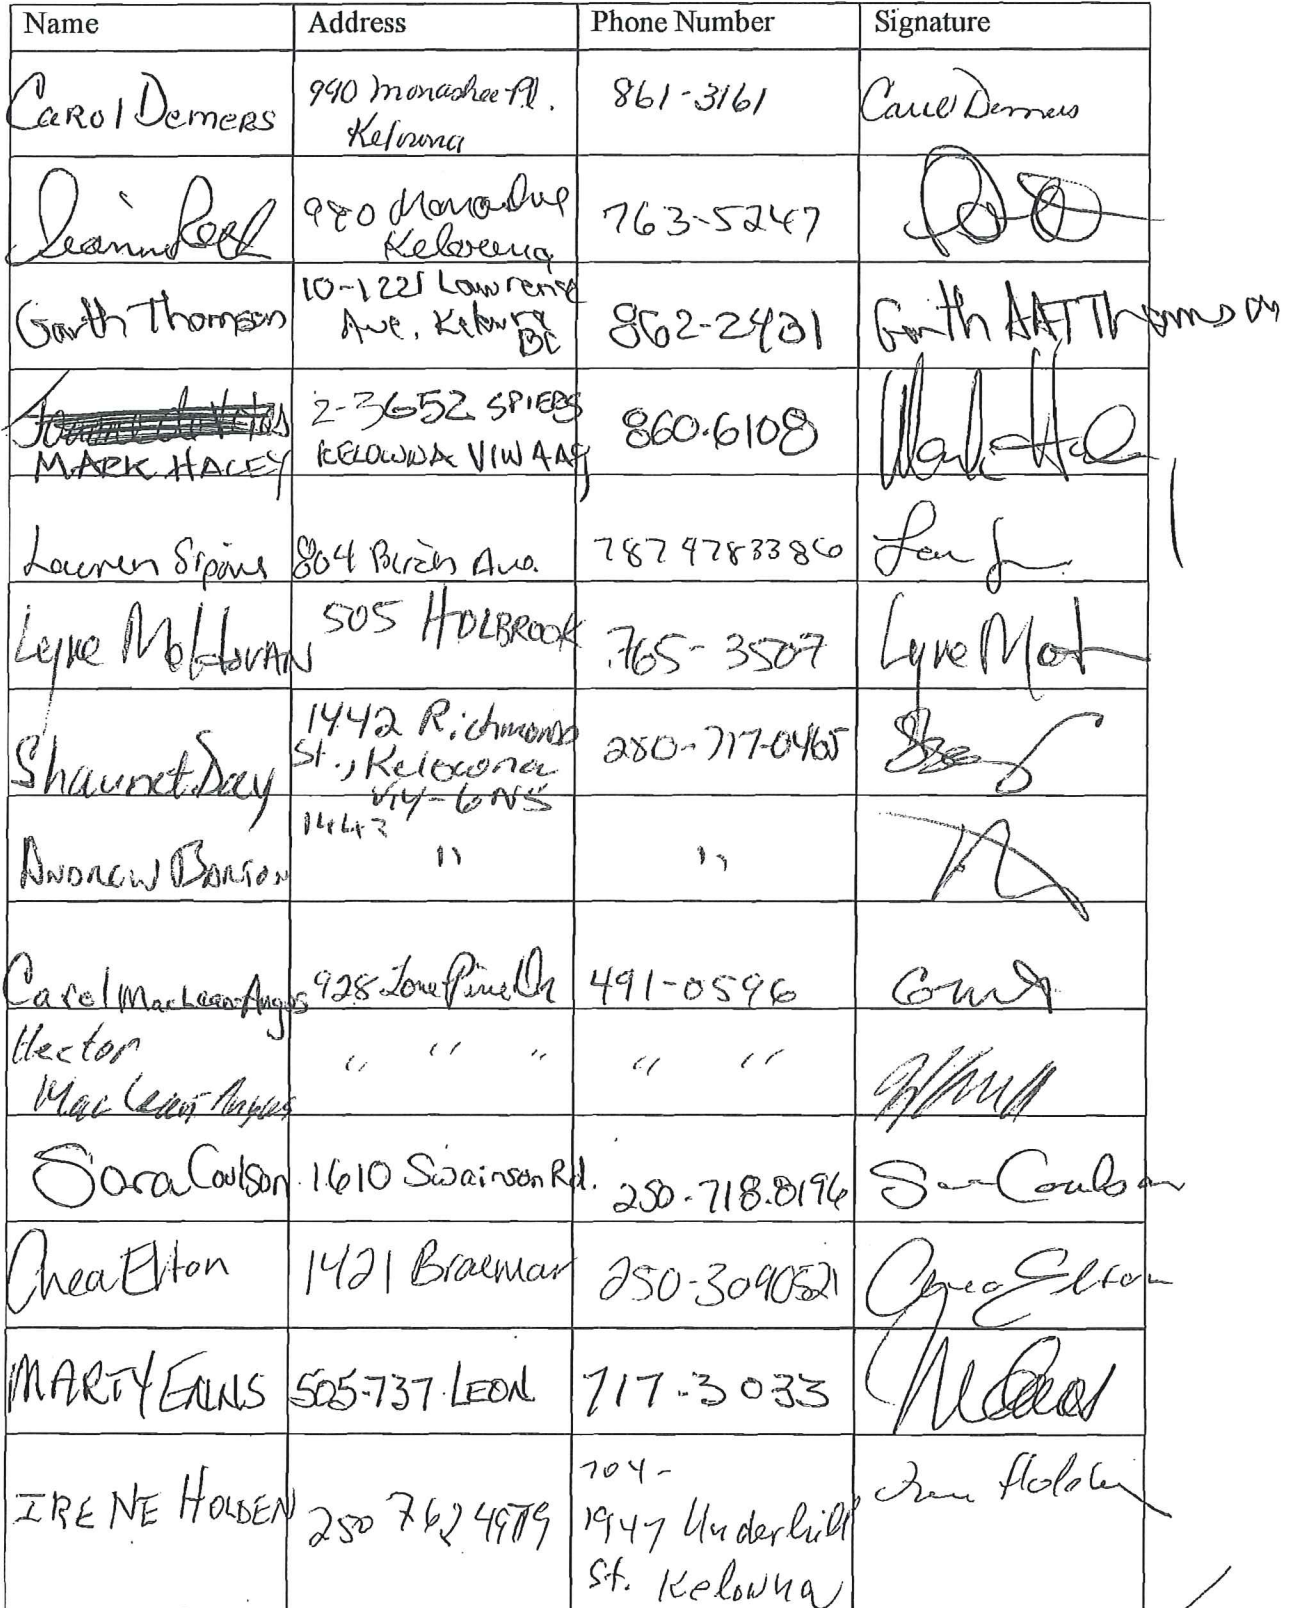 Name Address Phone Number Signature
Carol Demers 990 Monashee Pl. 861-3161 Carol Demers
Kelowna
980 Monashee 763-5247
Kelowna
Garth Thomson 10-1221 Lawrence 862-2431 Garth AAT Thomson
Ave. Kelowna
BC
MARK HACEY 2-3652 SPIERS 860.6108
KELOWNA V1W 4A9
Lauren Sipons 804 Birch Ave. 7874783386
Lyne Moldovan 505 HOLBROOK 765-3507 Lyne
Shaunet Day 1442 Richmond 250-717-0465
St., Kelowna
V1Y-6N5
ANDREW BARTON 1442 " "
Carol MacLean-Angus 928 Lone Pine Dr 491-0596
Hector " " " " "
MacLean-Angus
Sara Coulson 1610 Swainson Rd. 250-718.8196 Sara Coulson
Chea Elton 1421 Braemar 250-3090521 Chea Elton
MARTY ENNS 505-737 LEON 717-3033
IRENE HOLDEN 250 762 4979 704-
1947 Underhill
St. Kelowna
Irene Holden